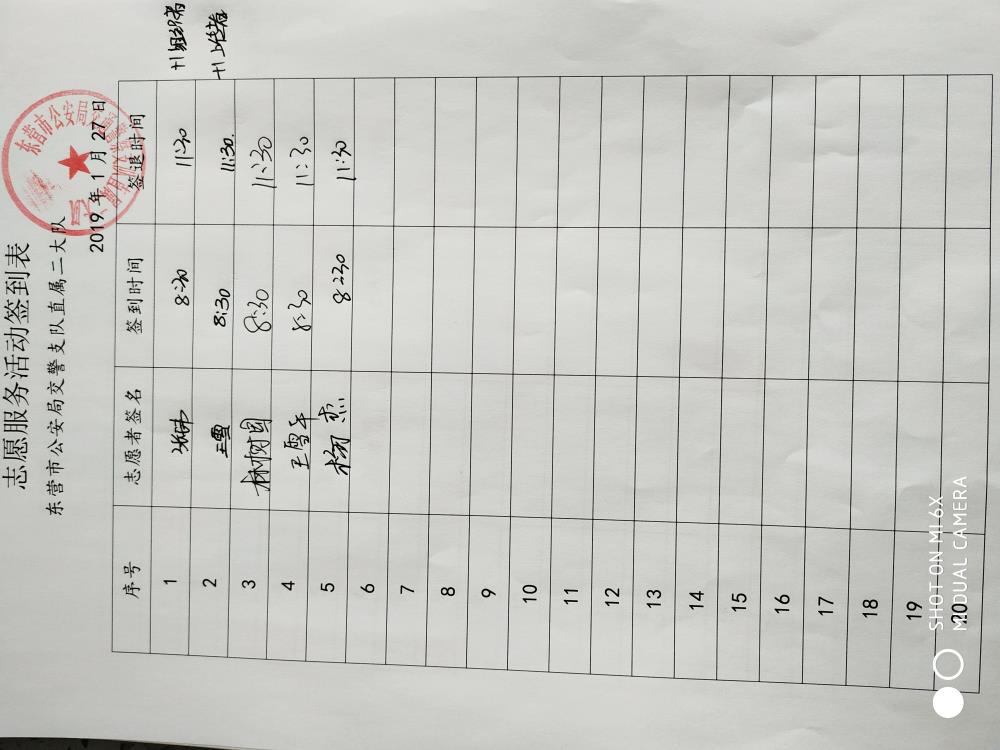 志愿服务活动签到表
东营市公安局交警支队直属二大队
2019年1月27日
序号 志愿者签名 签到时间 签退时间
1 8:30 11:30
2 王雪 8:30 11:30
3 林树国 8:30 11:30
4 王雪午 8:30 11:30
5 杨杰 8:30 11:30
6
7
8
9
10
11
12
13
14
15
16
17
18
19
20
东营市公安局
SHOT ON MI 6X
MI DUAL CAMERA